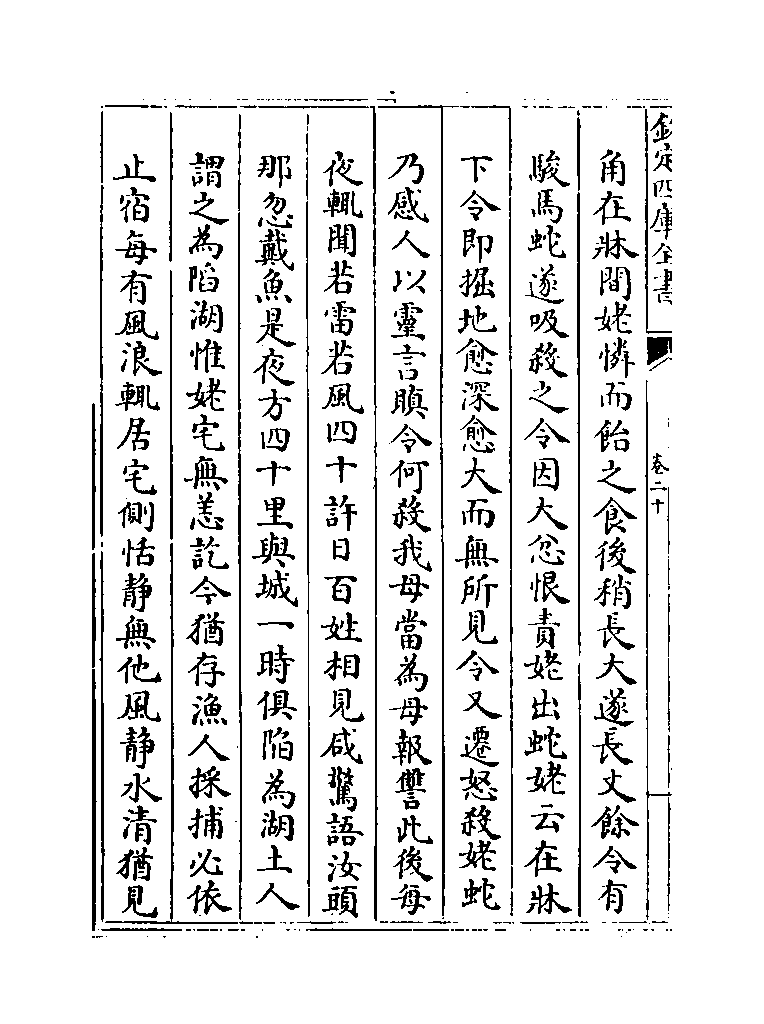 欽定四庫全書
卷二十
角在牀間姥憐而飴之食後稍長大遂長丈餘令有
駿馬蛇遂吸殺之令因大忿恨責姥出蛇姥云在牀
下令即掘地愈深愈大而無所見令又遷怒殺姥蛇
乃感人以靈言瞋令何殺我母當為母報讐此後每
夜輒聞若雷若風四十許日百姓相見咸驚語汝頭
那忽戴魚是夜方四十里與城一時俱陷為湖土人
謂之為陷湖惟姥宅無恙訖今猶存漁人採捕必依
止宿每有風浪輒居宅側恬静無他風静水清猶見